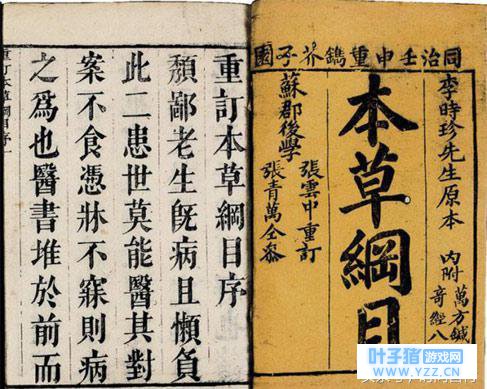 同治壬申重鐫芥子園
李時珍先生原本
內附萬方鍼
奇經八
本草綱目
張雲中重訂
張青萬仝參
蘇郡後學
重訂本草綱目序
頽鄙老生旣病且懶負
此二患世莫能醫其對
案不食憑牀不寐則病
之爲也醫書堆於前而
重訂本草綱目序一
叶子猪游戏网
YZZ.CN